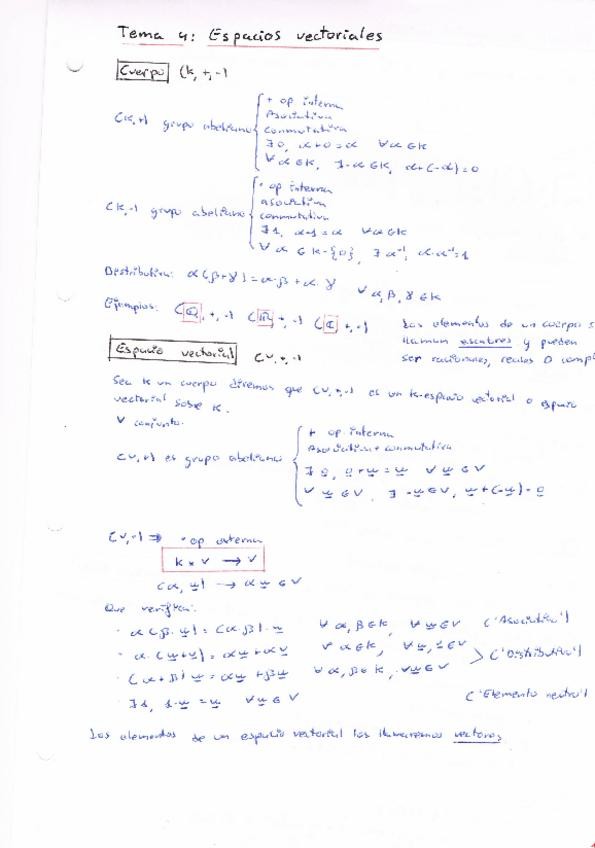 Tema 4: Espacios vectoriales
Cuerpo (K,+,·)
(K,+) grupo abeliano
+ op interna
Asociativa
conmutativa
∃ 0, α+0=α ∀α∈K
∀α∈K, ∃-α∈K, α+(-α)=0
(K,·) grupo abeliano
· op interna
asociativa
conmutativa
∃1, α·1=α ∀α∈K
∀α ∈ K-{0}, ∃ α⁻¹, α·α⁻¹=1
Distributiva: α(β+γ)=α·β+α·γ ∀α,β,γ∈K
Ejemplos: (ℚ,+,·) (ℝ,+,·) (ℂ,+,·)
Los elementos de un cuerpo s
llaman escalares y pueden
ser racionales, reales o compl
Espacio vectorial (V,+,·)
Sea K un cuerpo diremos que (V,+,·) es un K-espacio vectorial o espacio
vectorial sobre K.
V conjunto.
(V,+) es grupo abeliano
+ op interna
Asociativa + conmutativa
∃ 0, 0+u=u ∀u∈V
∀u∈V, ∃-u∈V, u+(-u)=0
(V,·) ⇒ · op externa
K × V → V
(α,u) → αu∈V
Que verifica:
· α(β·u)=(α·β)·u ∀α,β∈K, ∀u∈V ('Asociativa')
· α·(u+v)=αu+αv ∀α∈K, ∀u,v∈V
('Distributiva')
· (α+β)u=αu+βu ∀α,β∈K, ∀u∈V
· ∃1, 1·u=u ∀u∈V ('Elemento neutro')
Los elementos de un espacio vectorial los llamaremos vectores